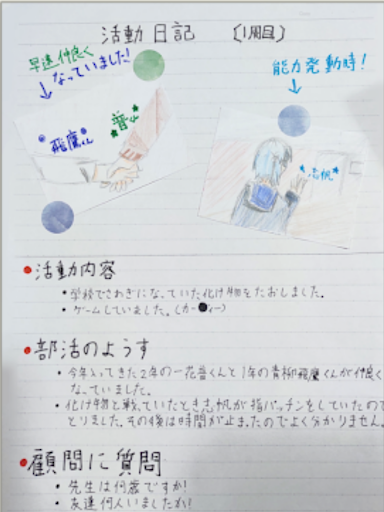 活動日記 〔1周目〕
早速仲良く
なっていました!
能力発動時!
飛鷹くん
普くん
志帆
・活動内容
・学校でさわぎになっていた化け物をたおしました。
・ゲームしていました。(カー●ィー)
・部活のようす
・今年入ってきた2年の一花普くんと1年の青柳飛鷹くんが仲良く
なっていました。
・化け物と戦っていたとき志帆が指パッチンをしていたので
とりました。その後は時間が止まったのでよく分かりません。
・顧問に質問
・先生は何歳ですか!
・友達何人いましたか!